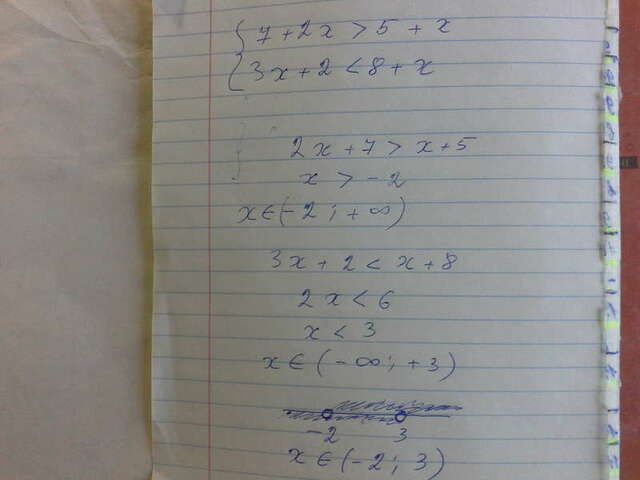 7 + 2x > 5 + x
3x + 2 < 8 + x
2x + 7 > x + 5
x > -2
x ∈ (-2 ; +∞)
3x + 2 < x + 8
2x < 6
x < 3
x ∈ (-∞ ; +3)
-2 3
x ∈ (-2 ; 3)